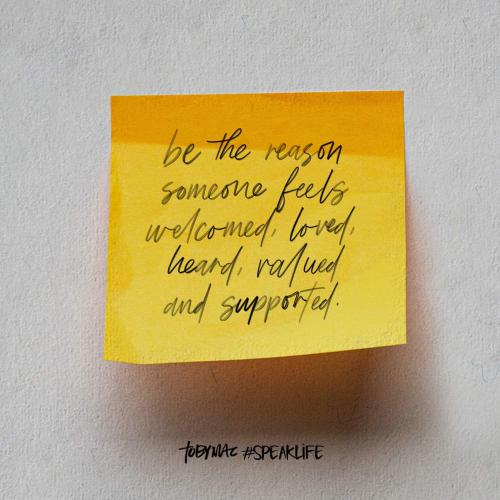 be the reason
someone feels
welcomed, loved,
heard, valued
and supported.
TOBYMAC #SPEAKLIFE